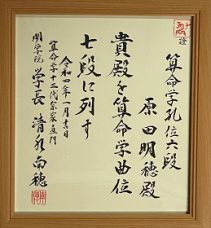 算命学孔位六段
原田明穂殿
貴殿を算命学曲位
七段に列す
令和四年一月吉日
算命学十三代宗家直門
明学院 学長 清水南穂